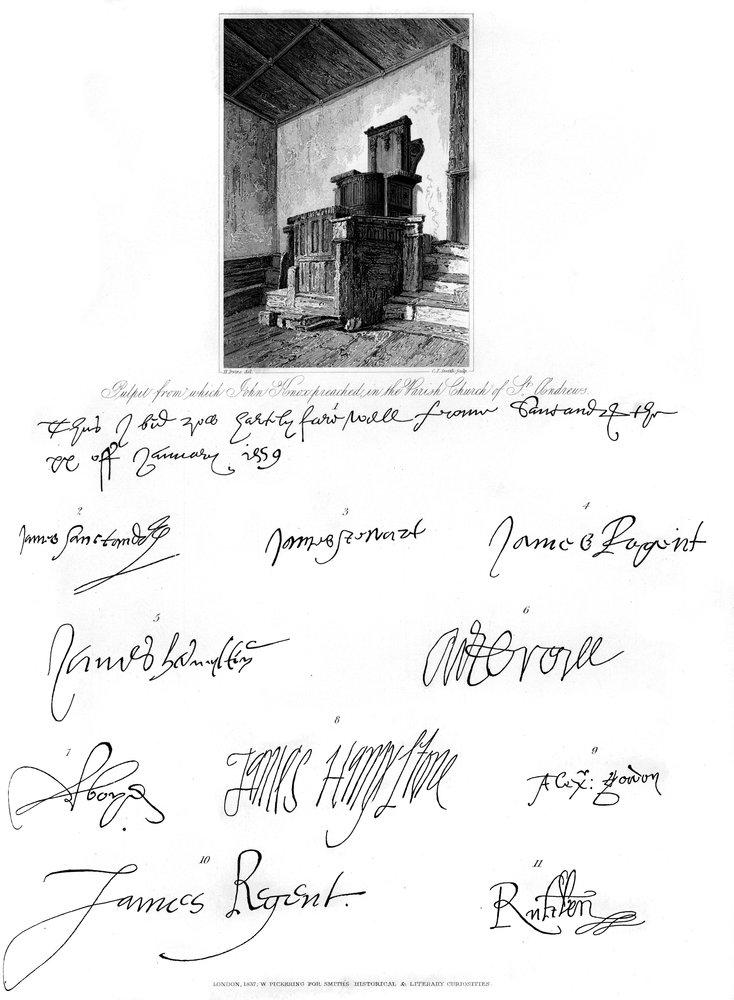 H. Irvine del. C. J. Smith sculp.
Pulpit from which John Knox preached, in the Parish Church of St. Andrews.
Thus I bid you hartely fare well frome Sanctand the
xx off January, 1559
2 3 4
James James Stewart James Regent
5 6
James hamylton
7 8 9
Aboyne James Hamyltone Alexr: Gordon
10 11
James Regent. Ruthven
LONDON, 1837, W. PICKERING FOR SMITHS HISTORICAL & LITERARY CURIOSITIES.